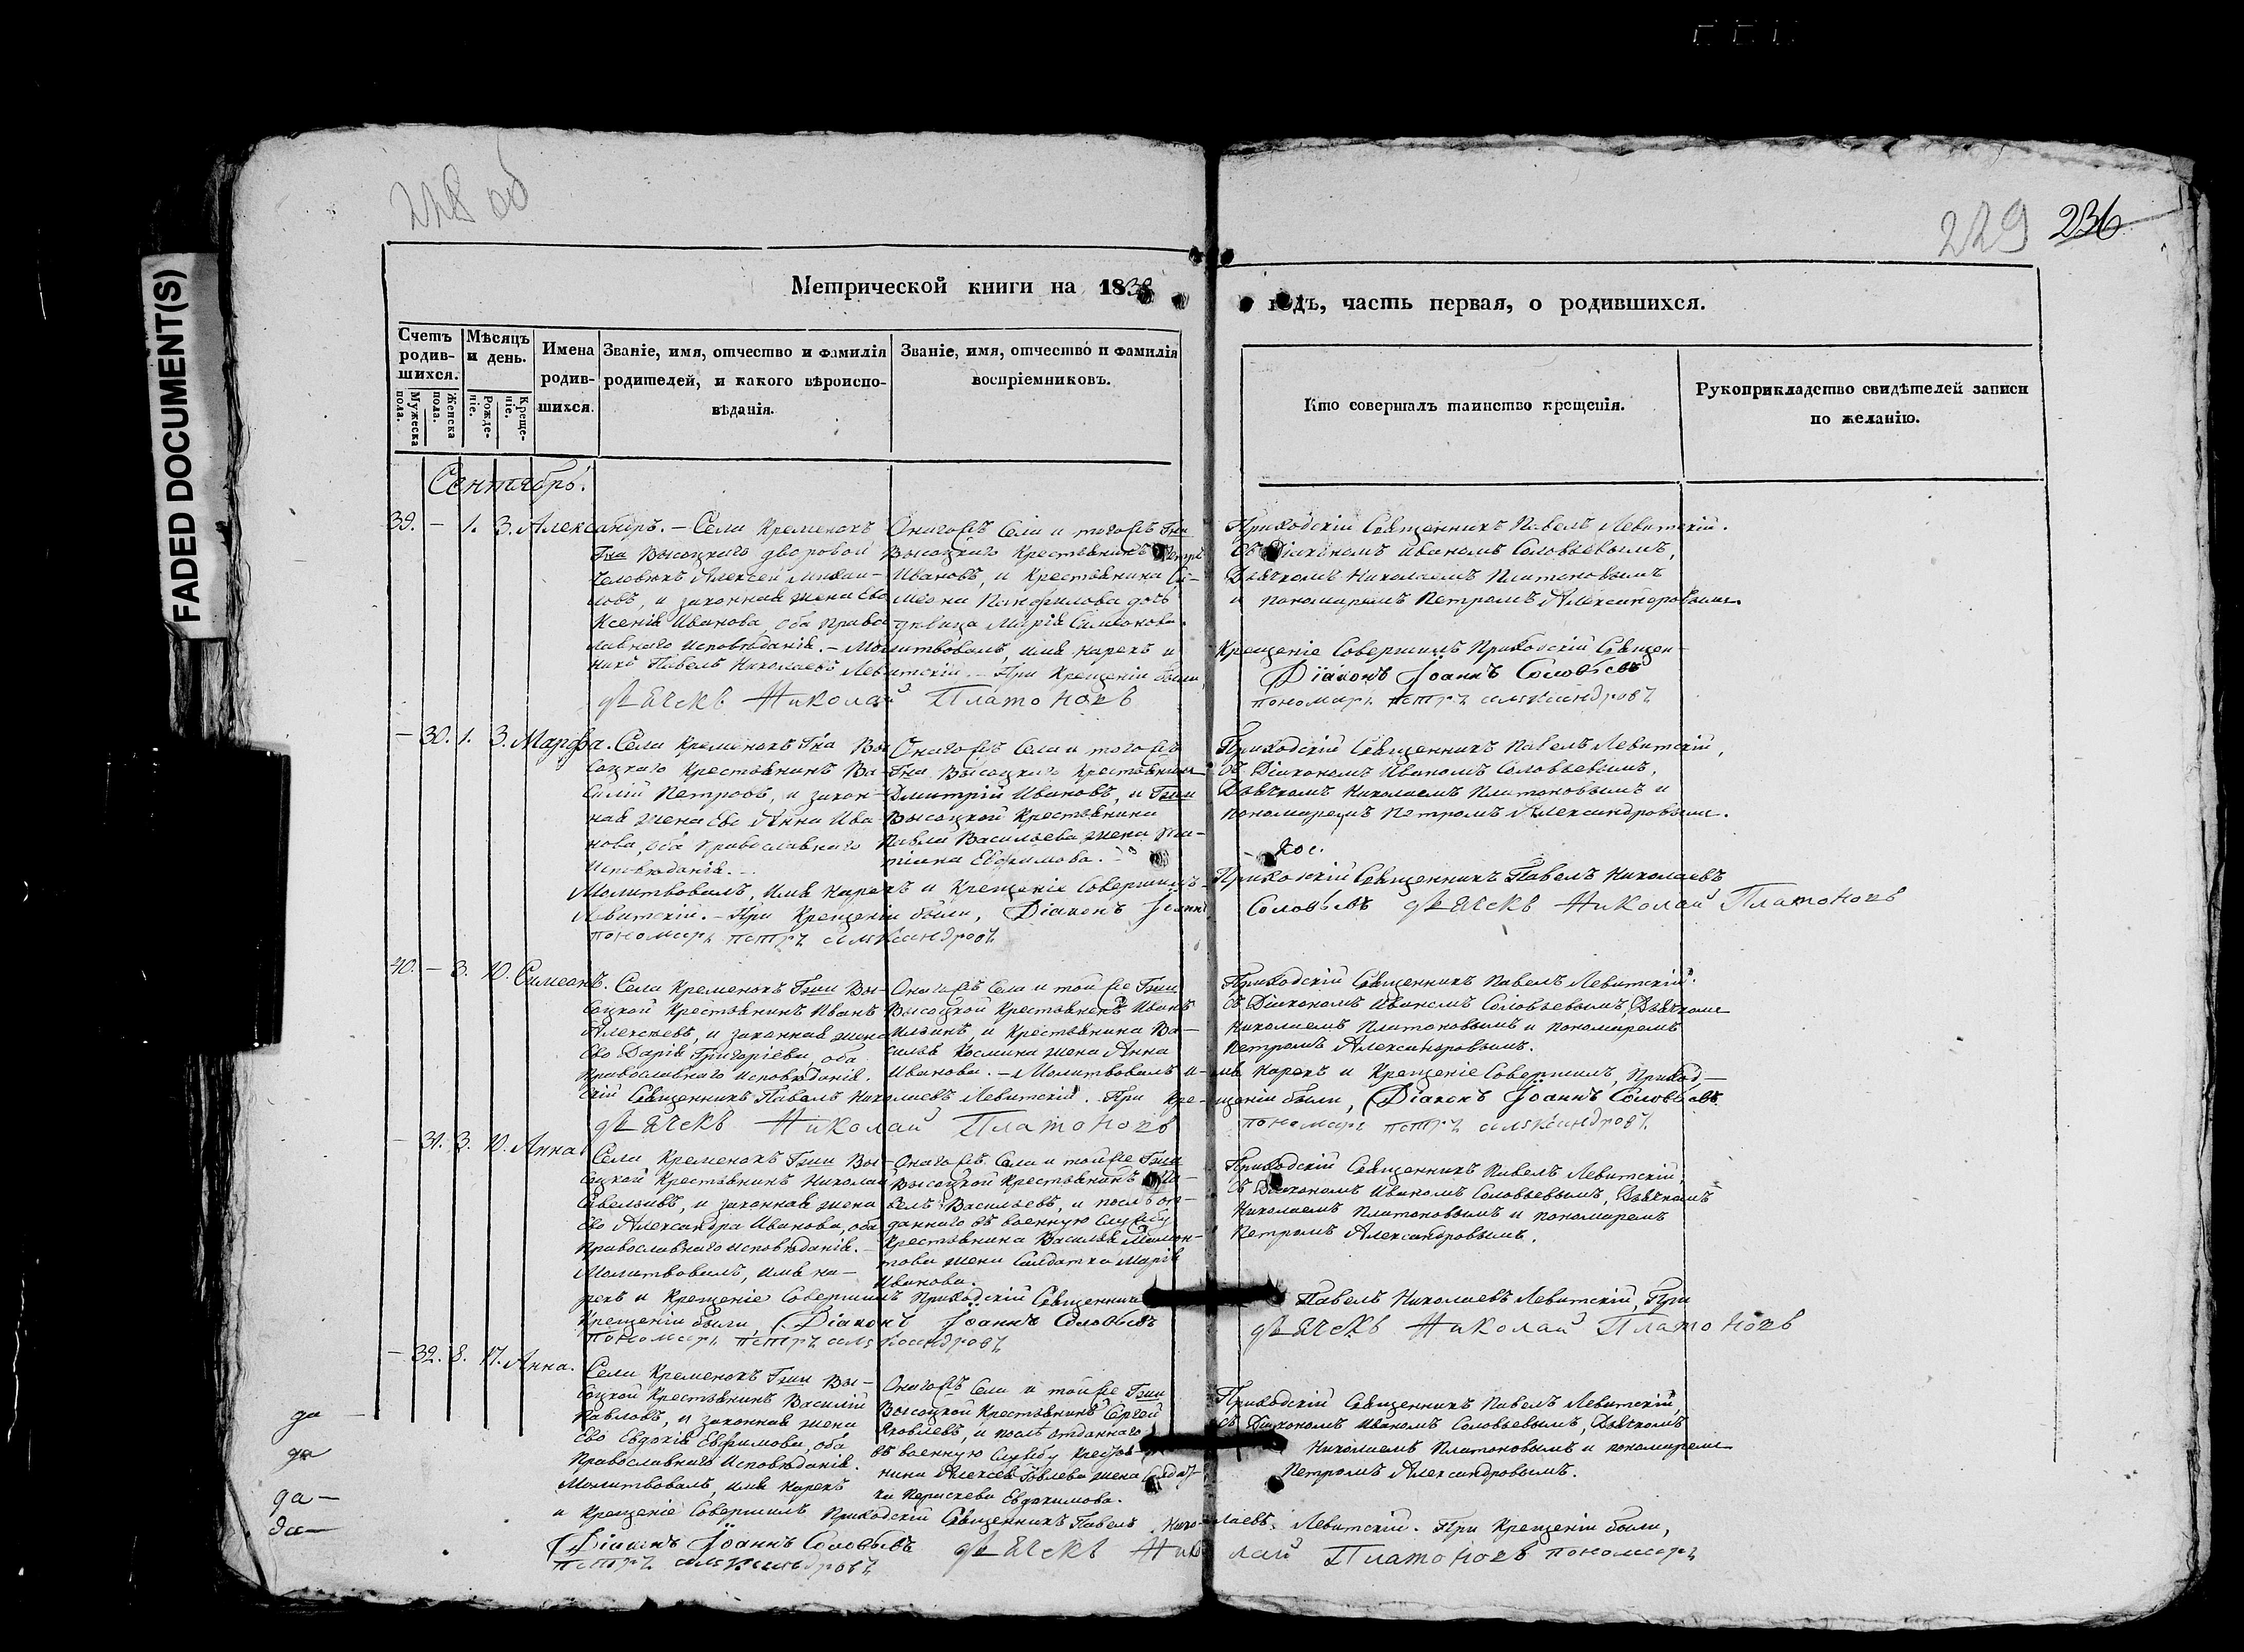 FADED DOCUMENT(S)
228 об
229 236
Метрической книги на 1838
годъ, часть первая, о родившихся.
Счетъ родив-шихся.
Мужеска пола.
Женска пола.
Мѣсяцъ и день.
Рожде-ніе.
Креще-ніе.
Имена родив-шихся.
Званіе, имя, отчество и фамилія родителей, и какого вѣроиспо-вѣданія.
Званіе, имя, отчество и фамилія воспріемниковъ.
Кто совершалъ таинство крещенія.
Рукоприкладство свидѣтелей записи по желанію.
Сентябрь.
39. – 1. 3. Александръ. – Села Кременокъ
Гна Высоцкаго дворовой
человѣкъ Алексей Михаи-
ловъ, и законная жена Его
Ксенія Иванова, оба право
Онагожъ Села и тогожъ Гна
Высоцкаго Крестьянинъ Петръ
Ивановъ, и Крестьянина Си-
меона Панфилова дочь
дѣвица Марія Симеонова.
Приходскій Священникъ Павелъ Левитскій.
Съ Діакономъ Иваномъ Соловьевымъ,
Дьячкомъ Николаемъ Платоновымъ
и пономаремъ Петромъ Александровымъ.
славнаго исповѣданія. – Молитвовалъ, имя нарекъ и Крещеніе Совершилъ Приходскій Священ-
никъ Павелъ Николаевъ Левитскій. – При Крещеніи были, Діаконъ Іоаннъ Соловьевъ
дьячекъ Николай Платоновъ пономарь петръ александровъ
– 30. 1. 3. Марфа. Села Кременокъ Гна Вы
соцкаго Крестьянинъ Ва-
силій Петровъ, и закон-
ная жена Его Анна Ива
нова, оба православнаго
исповѣданія.
Онагожъ Села и тогожъ
Гна Высоцкаго Крестьянинъ
Дмитрій Ивановъ, и Гжи
Высоцкой Крестьянина
Павла Васильева жена Та-
тіана Евфимова.
Приходскій Священникъ Павелъ Левитскій,
Съ Діакономъ Иваномъ Соловьевымъ,
Дьячкомъ Николаемъ Платоновымъ и
пономаремъ Петромъ Александровымъ.
Молитвовалъ, имя нарекъ и Крещеніе Совершилъ Приходскій Священникъ Павелъ Николаевъ
Левитскій. – При Крещеніи были, Діаконъ Іоаннъ Соловьевъ дьячекъ Николай Платоновъ
пономарь петръ александровъ
40. – 3. 10. Симеонъ. Села Кременокъ Гжи Вы-
соцкой Крестьянинъ Иванъ
Алексѣевъ, и законная жена
Его Дарія Григоріева, оба
Православнаго исповѣданія.
Онагожъ Села и той же Гжи
Высоцкой Крестьянинъ Иванъ
Ильинъ, и Крестьянина Ва-
силья Космина жена Анна
Иванова. – Молитвовалъ и-
Приходскій Священникъ Павелъ Левитскій.
Съ Діакономъ Иваномъ Соловьевымъ, Дьячкомъ
Николаемъ Платоновымъ и пономаремъ
Петромъ Александровымъ.
мя нарекъ и Крещеніе Совершилъ, Приход-
скій Священникъ Павелъ Николаевъ Левитскій. При Кре-щеніи были, Діаконъ Іоаннъ Соловьевъ
дьячекъ Николай Платоновъ пономарь петръ александровъ
– 31. 3. 10. Анна Села Кременокъ Гжи Вы-
соцкой Крестьянинъ Николай
Савельивъ, и законная жена
Его Александра Иванова, оба
православнаго исповѣданія. –
Молитвовалъ, имя на-
Онагожъ Села и той же Гжи
Высоцкой Крестьянинъ Па-
велъ Васильевъ, и послѣ от-
даннаго въ военную Службу
Крестьянина Василья
жена Салдатка Марія
Иванова.
Приходскій Священникъ Павелъ Левитскій,
Съ Діакономъ Иваномъ Соловьевымъ, Дьячкомъ
Николаемъ Платоновымъ и пономаремъ
Петромъ Александровымъ.
рекъ и Крещеніе Совершилъ Приходскій Священникъ Павелъ Николаевъ Левитскій, При
Крещеніи были, Діаконъ Іоаннъ Соловьевъ дьячекъ Николай Платоновъ
пономарь петръ александровъ
– 32. 8. 17. Анна. Села Кременокъ Гжи Вы-
соцкой Крестьянинъ Василій
Павловъ, и законная жена
Его Евдокія Евфимова, оба
Православнаго Исповѣданія.
Молитвовалъ, имя нарекъ
Онагожъ Села и той же Гжи
Высоцкой Крестьянинъ Сергей
Яковлевъ, и послѣ отданнаго
въ военную Службу Крестья-
нина Алексея жена Салдат-
ка Параскева Евдокимова.
Приходскій Священникъ Павелъ Левитскій,
съ Діакономъ Иваномъ Соловьевымъ, Дьячкомъ
Николаемъ Платоновымъ и пономаремъ
Петромъ Александровымъ.
и Крещеніе Совершилъ Приходскій Священникъ Павелъ Нико-лаевъ Левитскій. При Крещеніи были,
Діаконъ Іоаннъ Соловьевъ дьячекъ Николай Платоновъ пономарь
петръ александровъ
да –
да
да –
да –